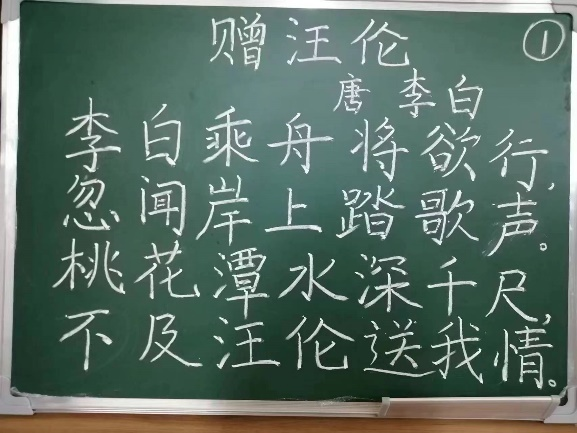 赠汪伦
①
唐 李白
李白乘舟将欲行,
忽闻岸上踏歌声。
桃花潭水深千尺,
不及汪伦送我情。